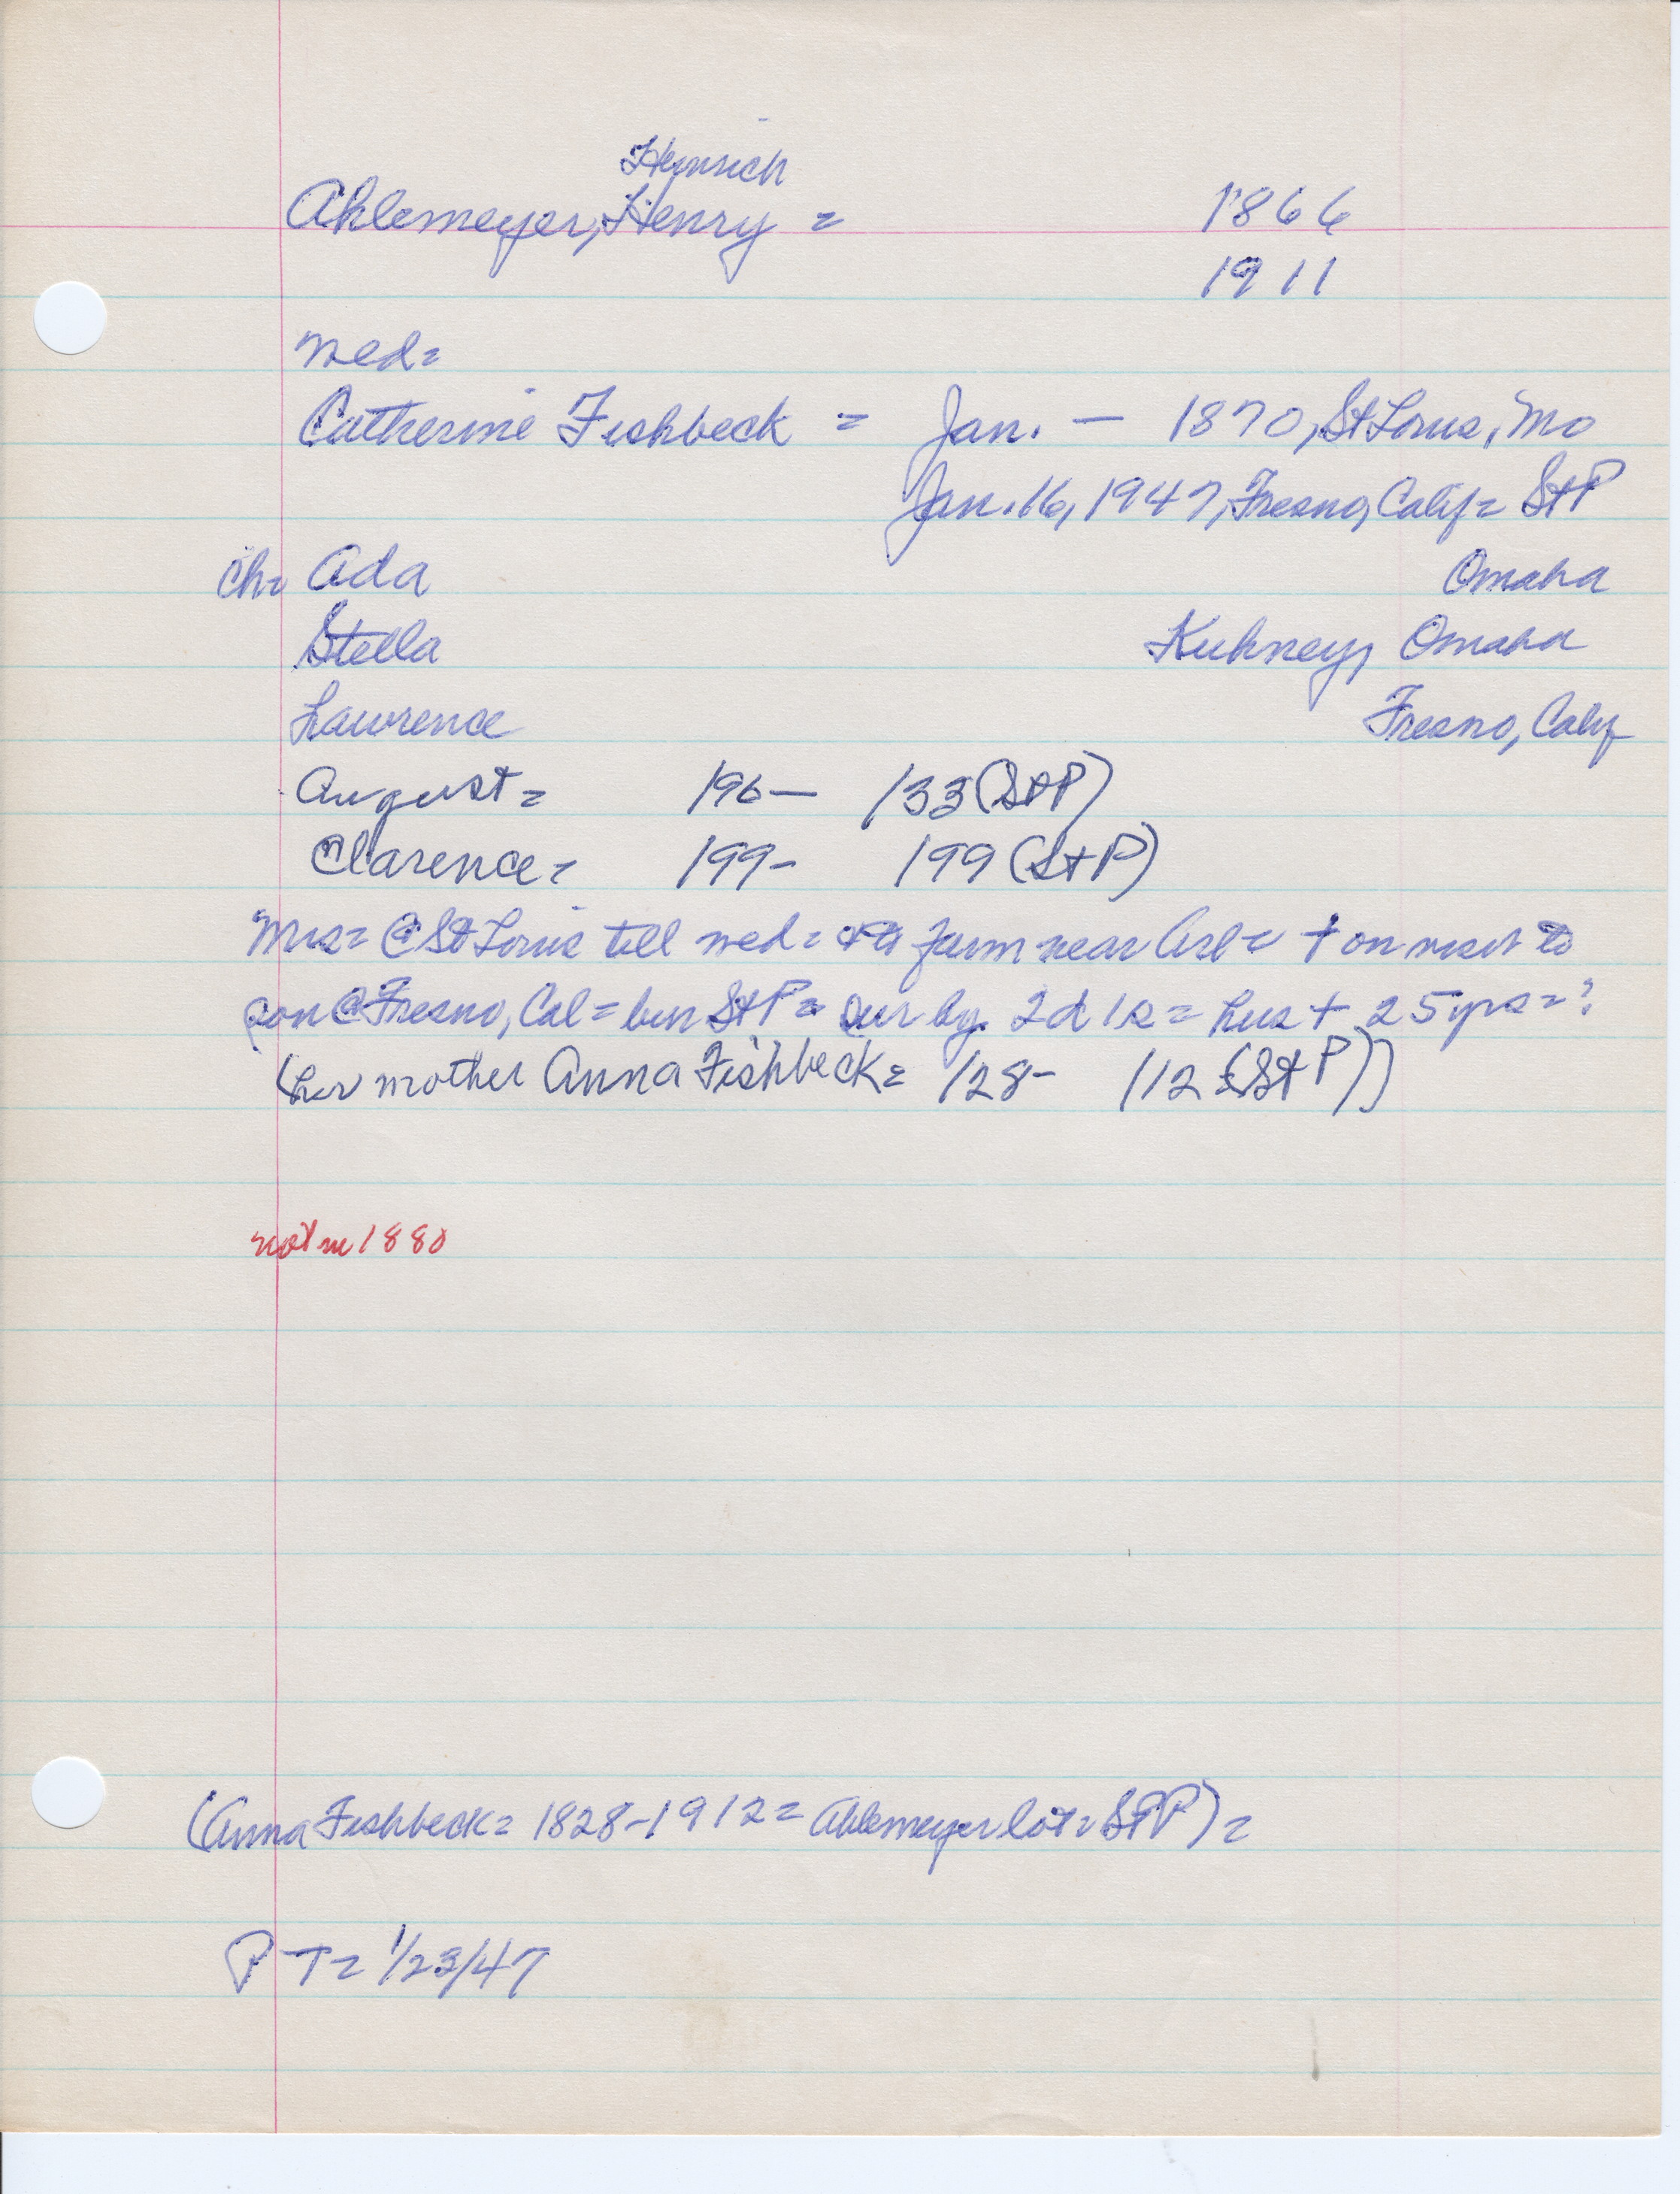 Heinrich
Ahlemeyer, Henry = 1866
1911
wed=
Catherine Fishbeck = Jan. — 1870, St Louis, Mo
Jan. 16, 1947, Fresno, Calif= St P
Ch= Ada Omaha
Stella Kuhney, Omaha
Lawrence Fresno, Calif
August = 196— 133 (St P)
Clarence = 199- 199 (St P)
Mrs= @ St Louis till wed= farm near Arl= + on visit to
son @ Fresno, Cal = bur St P= sur by 2d 1s = hus + 25 yrs=?
(her mother Anna Fishbeck= 128- 112 (St P))
not in 1880
(Anna Fishbeck= 1828-1912= Ahlemeyer lot= St P) =
P T= 1/23/47